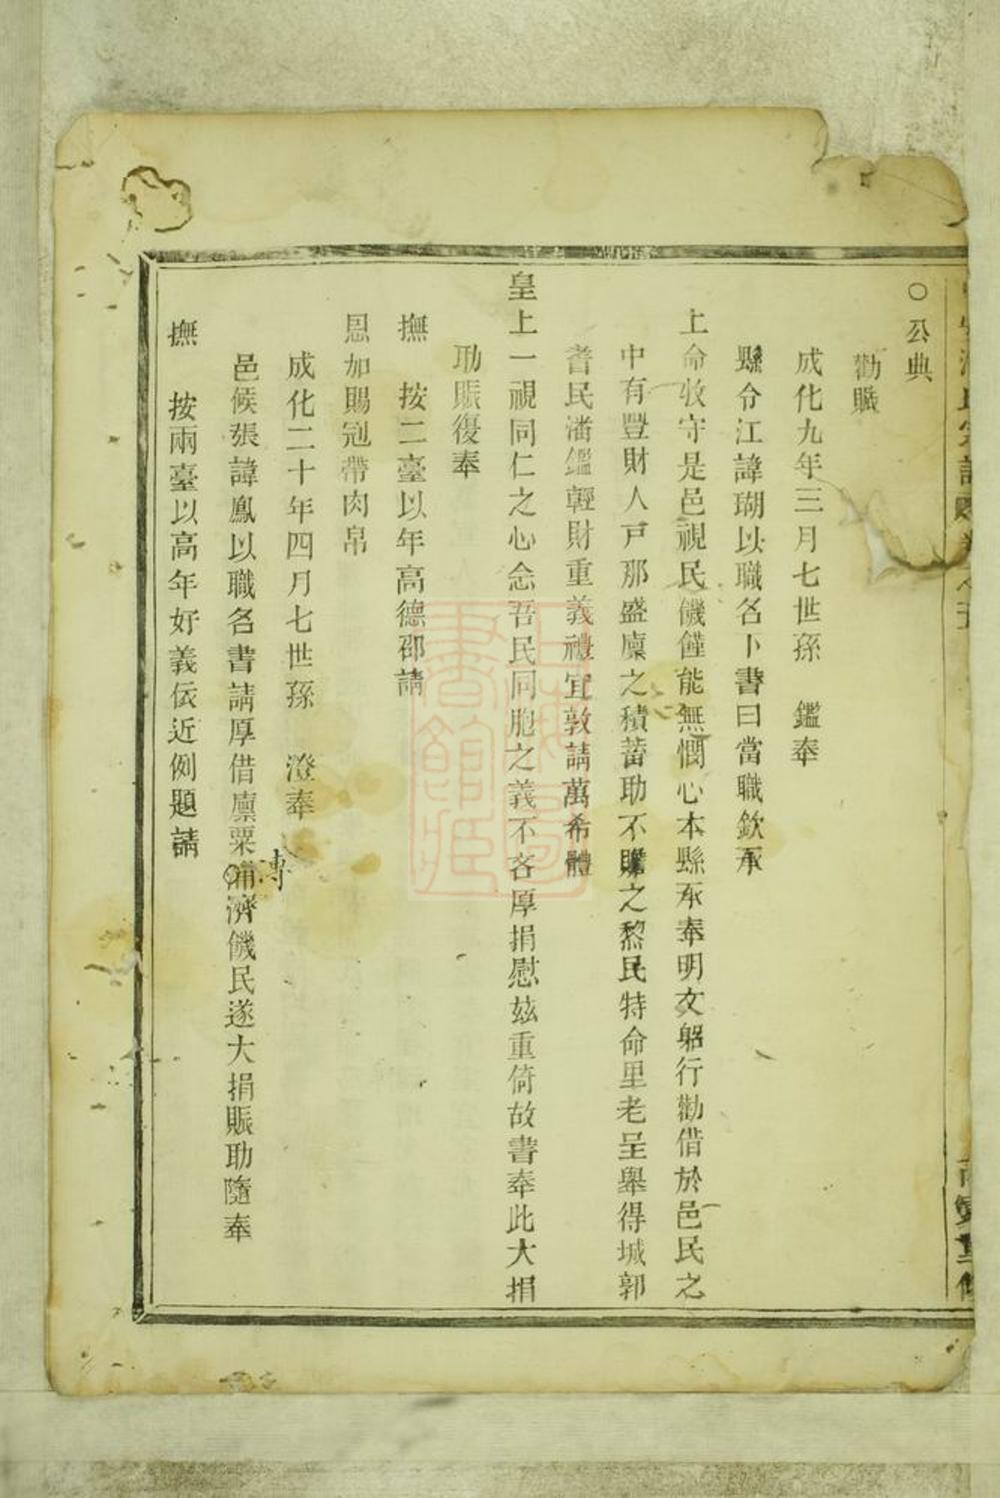 ○公典
勸賑
成化九年三月七世孫 鑑奉
縣令江諱瑚以職名卜書曰當職欽承
上命牧守是邑視民饑饉能無憫心本縣承奉明文躬行勸借於邑民之
中有豐財人戸那盛廩之積蓄助不贍之黎民特命里老呈舉得城郭
耆民潘鑑輕財重義禮宜敦請萬希體
皇上一視同仁之心念吾民同胞之義不吝厚捐慰玆重倚故書奉此大捐
助賑復奉
撫 按二臺以年高德邵請
恩加賜冠帶肉帛
成化二十年四月七世孫 澄奉
邑候張諱鳳以職名書請厚借廪粟 濟饑民遂大捐賑助隨奉
撫 按兩臺以高年好義依近例題請